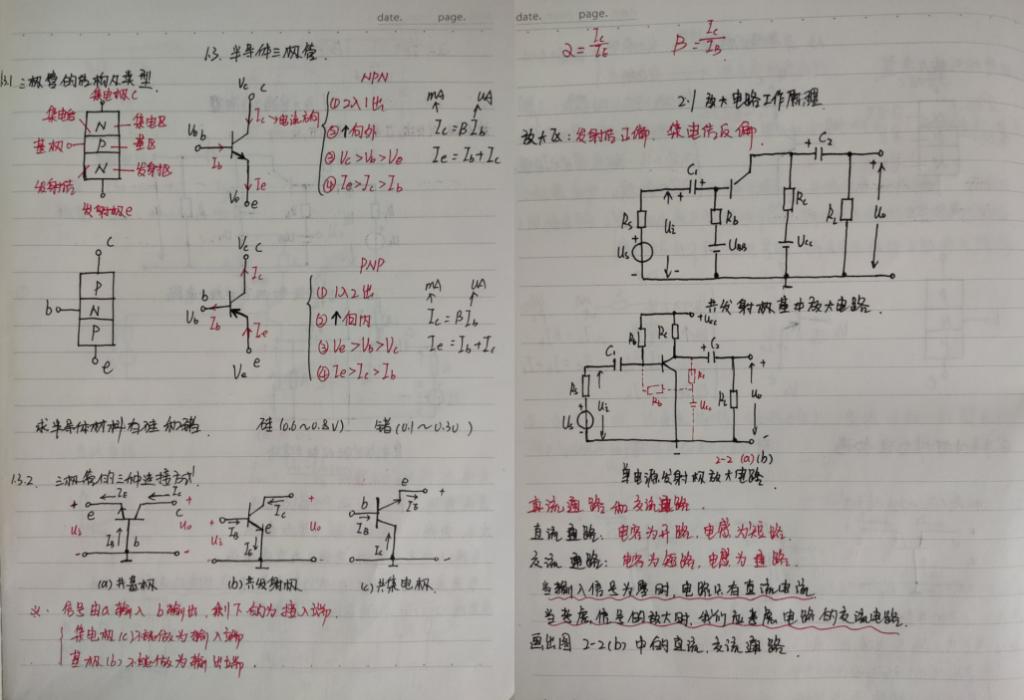 date. page.
1.3. 半导体三极管.
1.3.1 三极管的结构及类型
集电极c
集电结
N
集电区
基极
P
基区
N
发射结
发射区
发射极e
Vc c
Ic → 电流方向
Vb b
Ib
Ie
e
NPN
① 2入1出
② ↑向外
③ Vc>Vb>Ve
④ Ie>Ic>Ib
mA uA
Ic=βIb
Ie=Ib+Ic
c
P
b
N
P
e
Vc c
Ic
b
Vb
Ib
Ie
e
Ve
PNP
① 1入2出
② ↑向内
③ Ve>Vb>Vc
④ Ie>Ic>Ib
mA uA
Ic=βIb
Ie=Ib+Ic
求半导体材料为硅和锗. 硅(0.6～0.8V) 锗(0.1～0.3V)
1.3.2. 三极管的三种连接方式
(a)共基极 (b)共发射极 (c)共集电极.
※. 信号由a输入 b输出, 剩下的为接入端.
集电极(c)不能做为输入端
基极(b)不能做为输出端.
date. page.
α=Ic/IE β=Ic/IB
2.1 放大电路工作原理.
放大区: 发射结正偏, 集电结反偏.
C1
C2
Rs
Ui
Rb
Rc
RL
Uo
Us
UBB
Vcc
共发射极基本放大电路.
+Ucc
Rb
Rc
C1
C2
Rs
Ui
Rb
Rc
Ucc
RL
Uo
Us
2-2 (a)(b)
单电源发射极放大电路.
直流通路和交流通路.
直流通路. 电容为开路, 电感为短路.
交流通路: 电容为短路, 电感为通路.
当输入信号为零时, 电路只有直流电流
当考虑信号的放大时, 我们应考虑电路的交流电路.
画出图2-2(b)中的直流,交流通路.